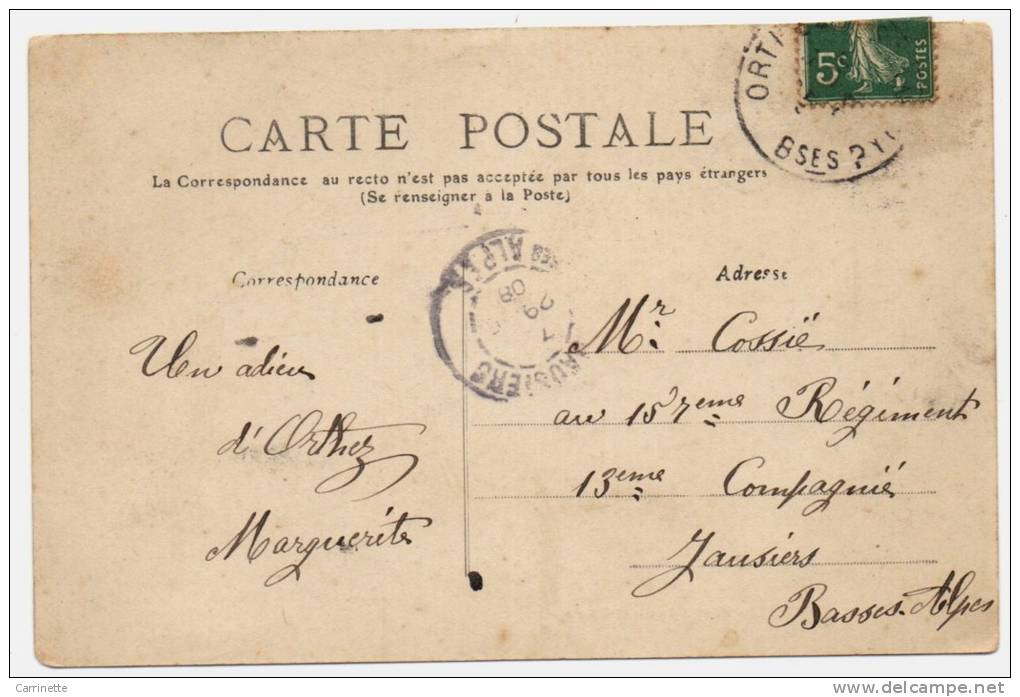 5c
POSTES
ORT
BSES PY
CARTE POSTALE
La Correspondance au recto n'est pas acceptée par tous les pays étrangers
(Se renseigner à la Poste)
SES ALPES
29
08
JAUSIERS
Correspondance
Un adieu
d'Orthez
Marguerite
Adresse
Mr. Cossié
au 157eme Régiment
13eme Compagnie
Jausiers
Basses-Alpes
Carrinette
delcampe.net